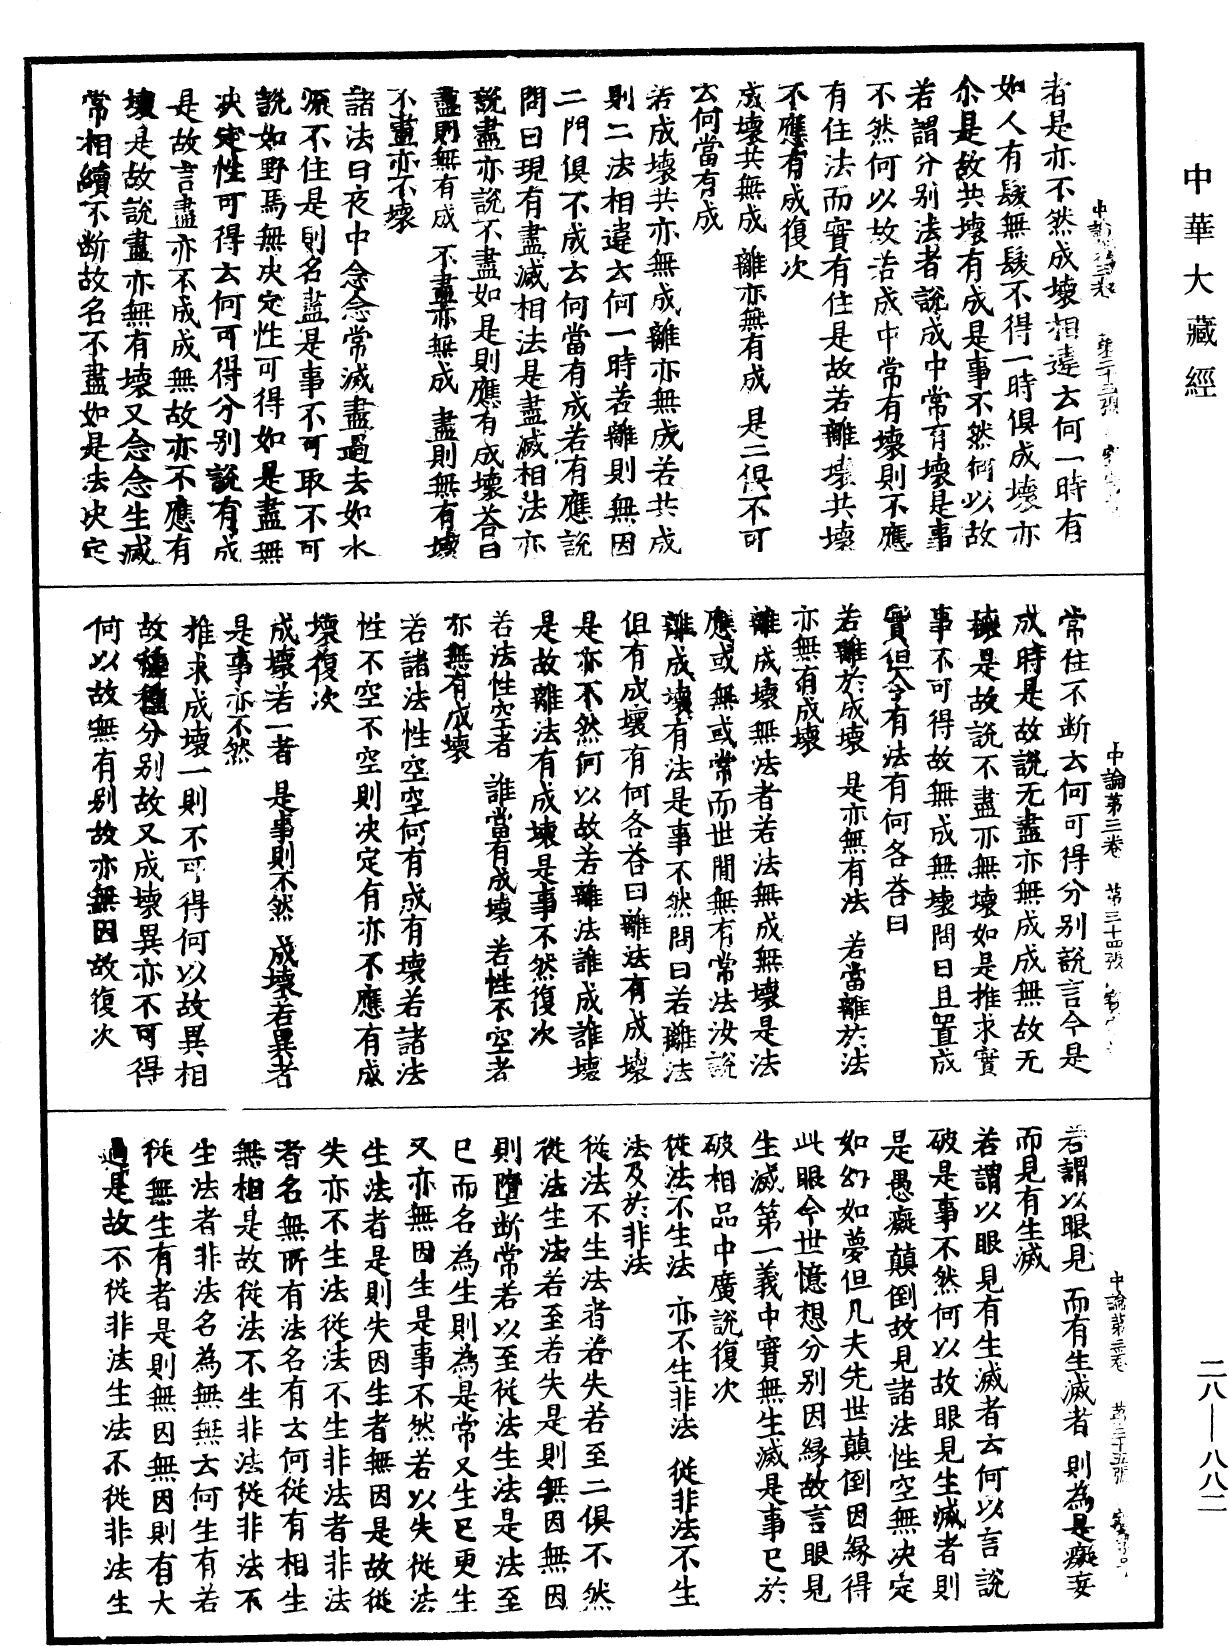 中華大藏經
者是亦不然成壞相違云何一時有
如人有髮無髮不得一時俱成壞亦
尒是故共壞有成是事不然何以故
若謂分別法者說成中常有壞是事
不然何以故若成中常有壞則不應
有住法而實有住是故若離壞共壞
不應有成復次
成壞共無成 離亦無有成 是二俱不可
云何當有成
若成壞共亦無成離亦無成若共成
則二法相違云何一時若離則無因
二門俱不成云何當有成若有應說
問曰現有盡滅相法是盡滅相法亦
說盡亦說不盡如是則應有成壞荅曰
盡則無有成 不盡亦無成 盡則無有壞
不盡亦不壞
諸法日夜中念念常滅盡過去如水
流不住是則名盡是事不可取不可
說如野馬無決定性可得如是盡無
決定性可得云何可得分別說有成
是故言盡亦不成成無故亦不應有
壞是故說盡亦無有壞又念念生滅
常相續不斷故名不盡如是法決定
中論第三卷 第三十四張
常住不斷云何可得分別說言今是
成時是故說无盡亦無成成無故无
壞是故說不盡亦無壞如是推求實
事不可得故無成無壞問曰且置成
壞但令有法有何各荅曰
若離於成壞 是亦無有法 若當離於法
亦無有成壞
離成壞無法者若法無成無壞是法
應或無或常而世間無有常法汝說
離成壞有法是事不然問曰若離法
但有成壞有何各荅曰離法有成壞
是亦不然何以故若離法誰成誰壞
是故離法有成壞是事不然復次
若法性空者 誰當有成壞 若性不空者
亦無有成壞
若諸法性空空何有成有壞若諸法
性不空不空則決定有亦不應有成
壞復次
成壞若一者 是事則不然 成壞若異者
是事亦不然
推求成壞一則不可得何以故異相
故種種分別故又成壞異亦不可得
何以故無有別故亦無因故復次
中論第三卷 第三十五張
若謂以眼見 而有生滅者 則為是癡妄
而見有生滅
若謂以眼見有生滅者云何以言說
破是事不然何以故眼見生滅者則
是愚癡顛倒故見諸法性空無決定
如幻如夢但凡夫先世顛倒因緣得
此眼今世憶想分別因緣故言眼見
生滅第一義中實無生滅是事已於
破相品中廣說復次
從法不生法 亦不生非法 從非法不生
法及於非法
從法不生法者若失若至二俱不然
從法生法若至若失是則無因無因
則墮斷常若以至從法生法是法至
已而名為生則為是常又生已更生
又亦無因生是事不然若以失從法
生法者是則失因生者無因是故從
失亦不生法從法不生非法者非法
者名無所有法名有云何從有相生
無相是故從法不生非法從非法不
生法者非法名為無無云何生有若
從無生有者是則無因無因則有大
過是故不從非法生法不從非法生
二八—八八二